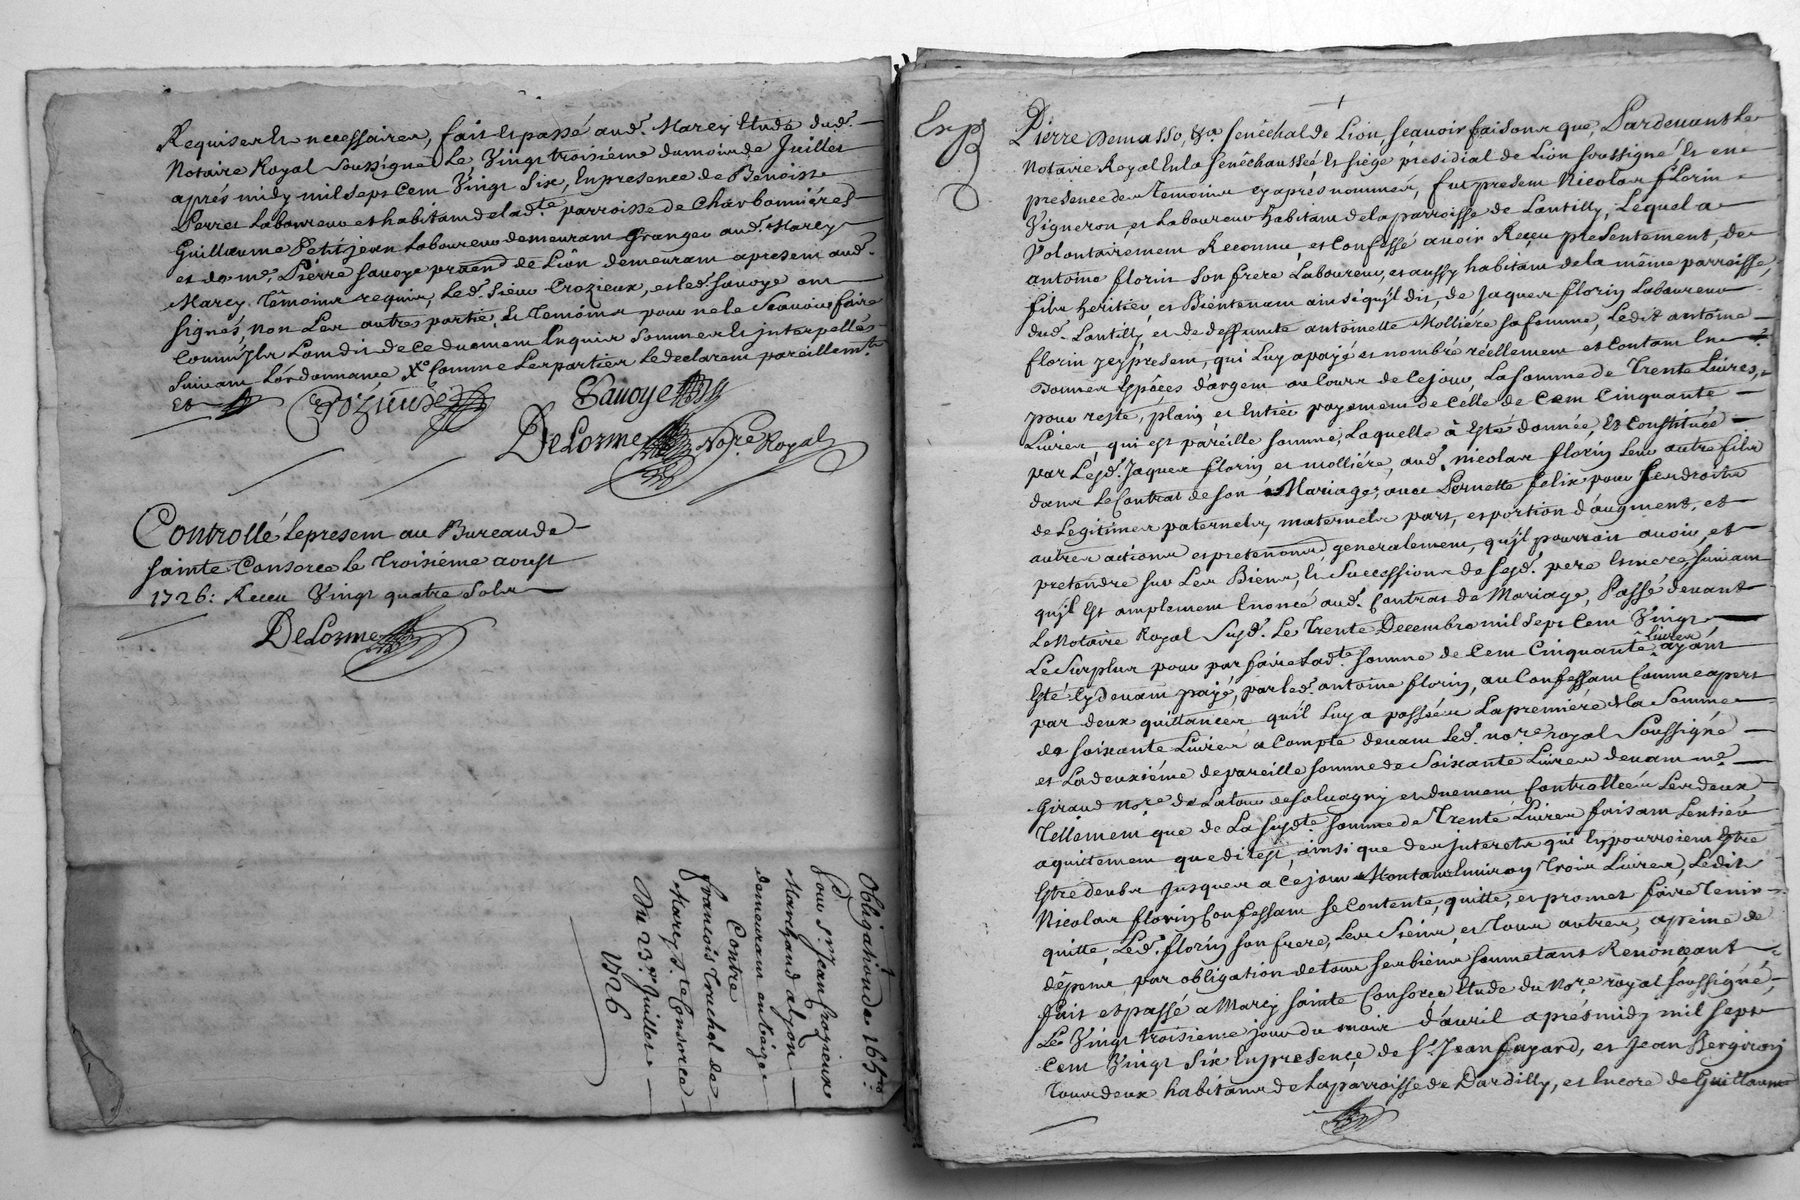 Requises et necessaires, fait et passé aud. Marcy Etude dud.
Notaire Royal soussigné Le Vingt troisiéme du mois de Juillet
aprés midy mil sept Cent Vingt Six, En presence de Benoist
Perret Laboureur et habitant de lad.te parroisse de Charbonniéres
Guillaume Petitjean Laboureur demeurant Granger aud. Marcy
et de me. Pierre Savoye de Lion demeurant apresent aud.
Marcy. Témoins requis, Led. Sieur Crozieux, et led. Savoye ont
signés, non Les autres partie, et Temoins pour ne le Scavoir faire
Comm'jls L'ont dit de ce duement Enquis Sommés et jnterpellés
suivant L'ordonnance Comme Les parties Le declarent pareillemt.
Et
Crozieux Savoye
DeLorme Nore. Royal
Controllé Le present au Bureau de
sainte Consorce le Troisiéme aoust
1726: Receu Vingt quatre Sols
DeLorme
Obligation de 165
Pour sr. Jean Crozieux
Marchand a Lyon
demeurant
Contre
francois Truchet de
Marcy s.te Consorce
Du 23e. Juillet
1726
Exp
Pierre Demasso, &a. senéchal de Lion, sçavoir faisons que, Pardevant Le
Notaire Royal En la senéchaussée et siége présidial de Lion soussigné et en
presence des temoins cy aprés nommés, fut present Nicolas florin
Vigneron et Laboureur habitant de la parroisse de Lantilly, Lequel a
Volontairement Reconnu, et Confessé avoir Reçeu presentement, de
antoine florin son frere, Laboureur, et aussy habitant de la même parroisse,
fils heritier, et Biéntenant ainsi qu'jl dit, de Jaques florin Laboureur
dud. Lantilly, et de deffuncte antoinette Molliére sa femme, Ledit antoine
florin jcy present, qui Luy a payé et nombré réellement et contant En
Bonnes Espéces d'argent au Cours de ce jour, La somme de Trente Livres,
pour reste, plain, et Entier payement de Celle de Cent Cinquante
Livres, qui est pareille somme, Laquelle à Esté donnée, et Constituée
par Lesd. Jaques florin et molliére, aud. nicolas florin Leur autre fils
dans Le Contrat de son Mariage, avec Pernette felix pour ses droits
de Legitimes paternels, maternels, part, et portion d'augment, et
autres actions et pretentions generalement, qu'jl pourroit avoir, et
pretendre sur Les Biens, et Successions de sesd. pere et mere, suivant
qu'jl Est amplement Enoncé aud. Contrat de Mariage, Passé devant
Le Notaire Royal Susd. Le Trente Decembre mil sept Cent Vingt
Le Surplus pour parfaire Lad.te somme de Cent Cinquante Livres ayant
Esté Cy Devant payé, par led. antoine florin, au Confessant Comme apert
par deux quittances qu'il Luy a passées La premiére de la Somme
de soixante Livres a Compte devant Led. nore royal Soussigné
et La deuxiéme de pareille somme de Soixante Livres devant me
Giraud Nore de Latour de Salvagny et duement Controllées Les deux
Tellement que de La susd.te somme de Trente Livres faisant L'entier
aquittement que dit est, ainsi que des jnterets qui En pourroient Estre
Estre deubs Jusques a ce jour Montant Environ Trois Livres, Ledit
Nicolas florin Confessant se Contente, quitte, et promet faire Tenir
quitte, Led. florin son frere, Les Siens et Tous autres, apéine de
dépens, par obligation de tous ses biens soumetant Renonceant
fait et passé a Marcy sainte Consorce Etude du Nore. royal soussigné,
Le Vingt troisieme jour du mois d'avril aprésmidy mil sept
Cent Vingt Six En presence de sr. Jean fayard, et Jean Bergiron
Tous deux habitans de La parroisse de Dardilly, et Encore de Guillaume